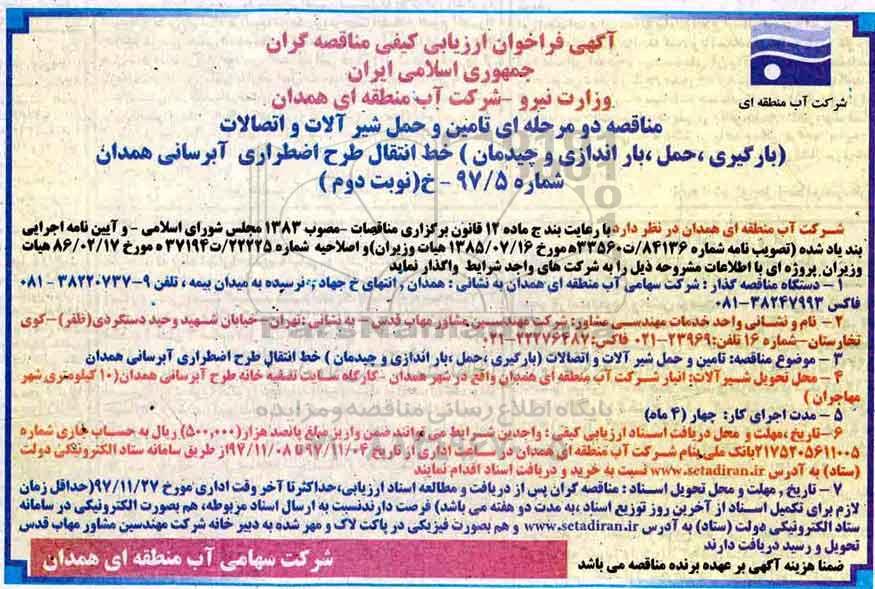 آگهی فراخوان ارزیابی کیفی مناقصه گران
جمهوری اسلامی ایران
وزارت نیرو -شرکت آب منطقه ای همدان
شرکت آب منطقه ای
مناقصه دو مرحله ای تامین و حمل شیر آلات و اتصالات
(بارگیری ،حمل ،بار اندازی و چیدمان ) خط انتقال طرح اضطراری آبرسانی همدان
شماره ۹۷/۵ - خ(نوبت دوم )
شرکت آب منطقه ای همدان در نظر دارد با رعایت بند ج ماده ۱۲ قانون برگزاری مناقصات -مصوب ۱۳۸۳ مجلس شورای اسلامی - و آیین نامه اجرایی
بند یاد شده (تصویب نامه شماره ۸۴۱۳۶/ت۳۳۵۶۰ه مورخ ۱۳۸۵/۰۷/۱۶ هیات وزیران)و اصلاحیه شماره ۲۲۲۲۵/ت۳۷۱۹۴ ه مورخ ۸۶/۰۲/۱۷ هیات
وزیران, پروژه ای با اطلاعات مشروحه ذیل را به شرکت های واجد شرایط واگذار نماید
۱ - دستگاه مناقصه گذار : شرکت سهامی آب منطقه ای همدان به نشانی : همدان , انتهای خ جهاد , نرسیده به میدان بیمه ، تلفن ۹-۳۸۲۲۰۷۳۷ - ۰۸۱
فاکس ۳۸۲۴۷۹۹۳-۰۸۱
۲ - نام و نشانی واحد خدمات مهندسی مشاور: شرکت مهندسین مشاور مهاب قدس - به نشانی :تهران - خیابان شهید وحید دستگردی(ظفر) -کوی
تخارستان-شماره ۱۶ تلفن:۲۳۹۶۹-۰۲۱ فاکس:۲۲۲۷۶۴۸۷-۰۲۱
۳ - موضوع مناقصه: تامین و حمل شیر آلات و اتصالات (بارگیری ،حمل ،بار اندازی و چیدمان ) خط انتقال طرح اضطراری آبرسانی همدان
۴ - محل تحویل شیرآلات: انبار شرکت آب منطقه ای همدان واقع در شهر همدان - کارگاه سایت تصفیه خانه طرح آبرسانی همدان(۱۰ کیلومتری شهر
مهاجران )
۵ - مدت اجرای کار: چهار (۴ ماه)
۶ - تاریخ ،مهلت و محل دریافت اسناد ارزیابی کیفی : واجدین شرایط می توانند ضمن واریز مبلغ پانصد هزار(۵۰۰,۰۰۰) ریال به حساب جاری شماره
۲۱۷۵۲۰۵۶۱۱۰۰۵ بانک ملی بنام شرکت آب منطقه ای همدان در ساعت اداری از تاریخ ۹۷/۱۱/۰۴ تا ۹۷/۱۱/۰۸ از طریق سامانه ستاد الکترونیکی دولت
(ستاد) به آدرس www.setadiran.ir نسبت به خرید و دریافت اسناد اقدام نمایند
۷ - تاریخ , مهلت و محل تحویل اسناد : مناقصه گران پس از دریافت و مطالعه اسناد ارزیابی،حداکثر تا آخر وقت اداری مورخ ۹۷/۱۱/۲۷(حداقل زمان
لازم برای تکمیل اسناد از آخرین روز توزیع اسناد ،به مدت دو هفته می باشد) فرصت دارند نسبت به ارسال اسناد مربوطه، هم بصورت الکترونیکی در سامانه
ستاد الکترونیکی دولت (ستاد) به آدرس www.setadiran.ir و هم بصورت فیزیکی در پاکت لاک و مهر شده به دبیر خانه شرکت مهندسین مشاور مهاب قدس
تحویل و رسید دریافت دارند
ضمنا هزینه آگهی بر عهده برنده مناقصه می باشد
شرکت سهامی آب منطقه ای همدان
پایگاه اطلاع رسانی مناقصه و مزایده